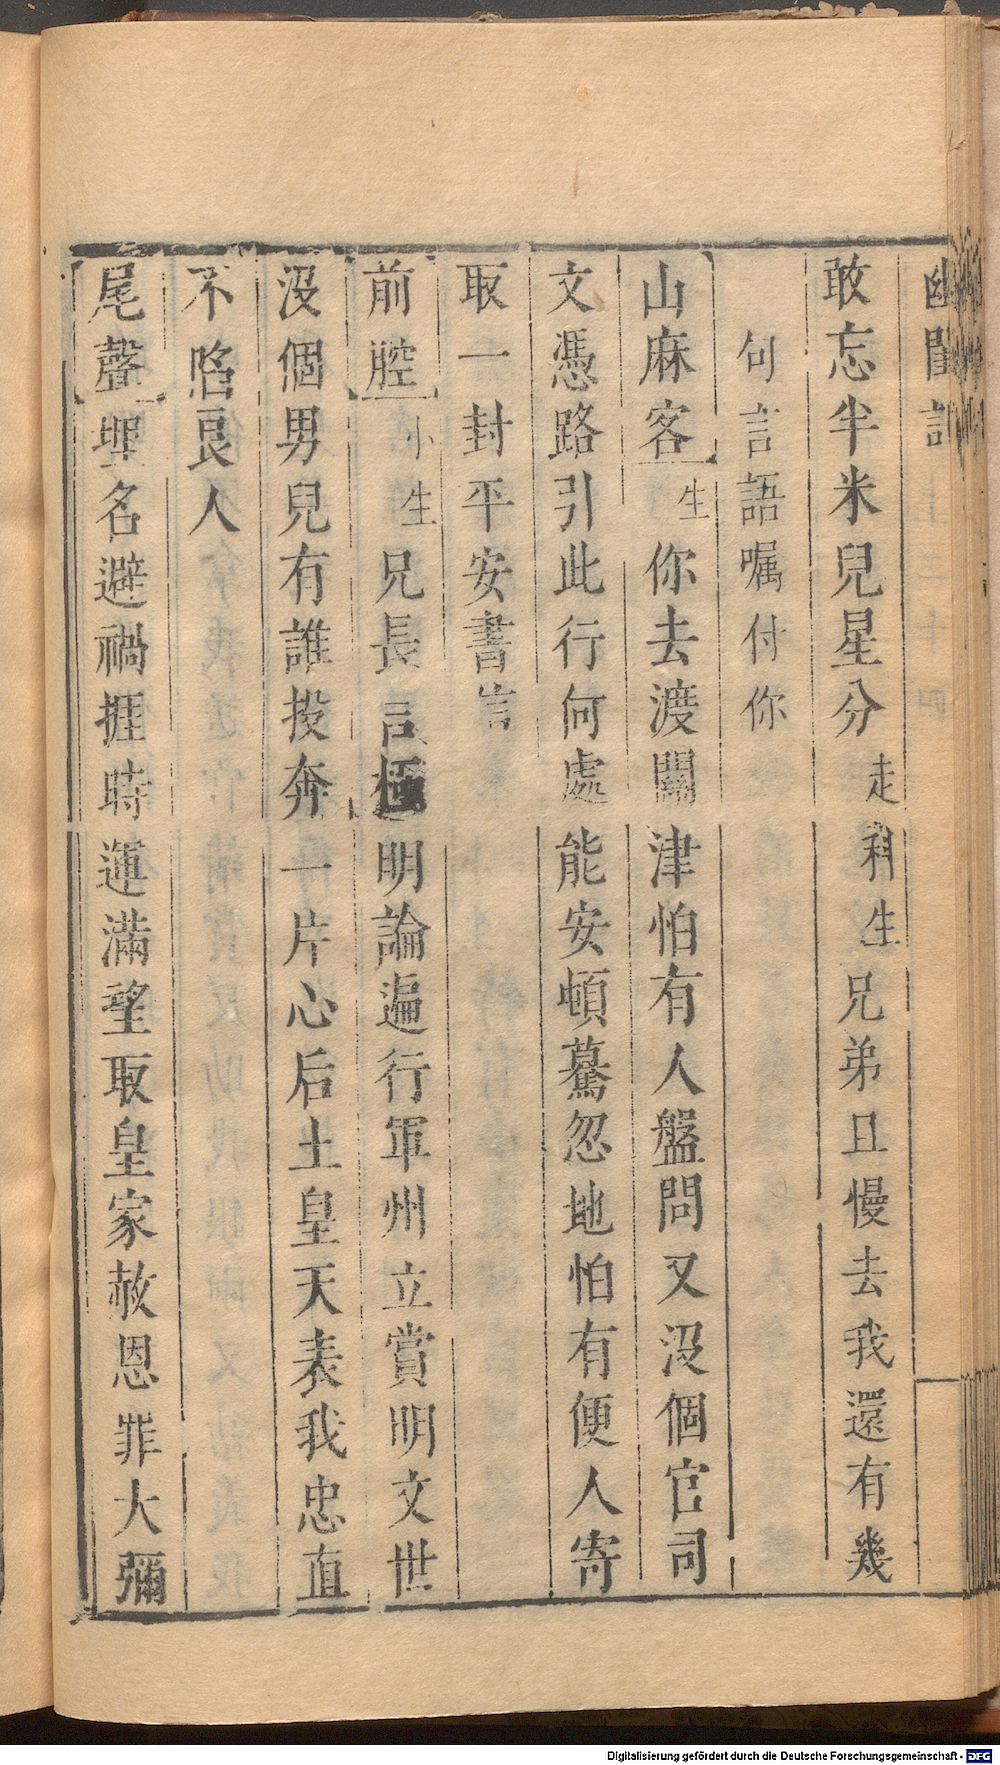 幽閨記
敢忘半米兒星分走科生兄弟且慢去我還有幾
句言語囑付你
山麻客生你去渡關津怕有人盤問又没個官司
文憑路引此行何處能安頓驀忽地怕有便人寄
取一封平安書信
前腔小生兄長言極明論遍行軍州立賞明文世
没個男兒有誰投奔一片心后土皇天表我忠直
不陷良人
尾聲埋名避禍捱時運滿望取皇家赦恩罪大彌
Digitalisierung gefördert durch die Deutsche Forschungsgemeinschaft - DFG